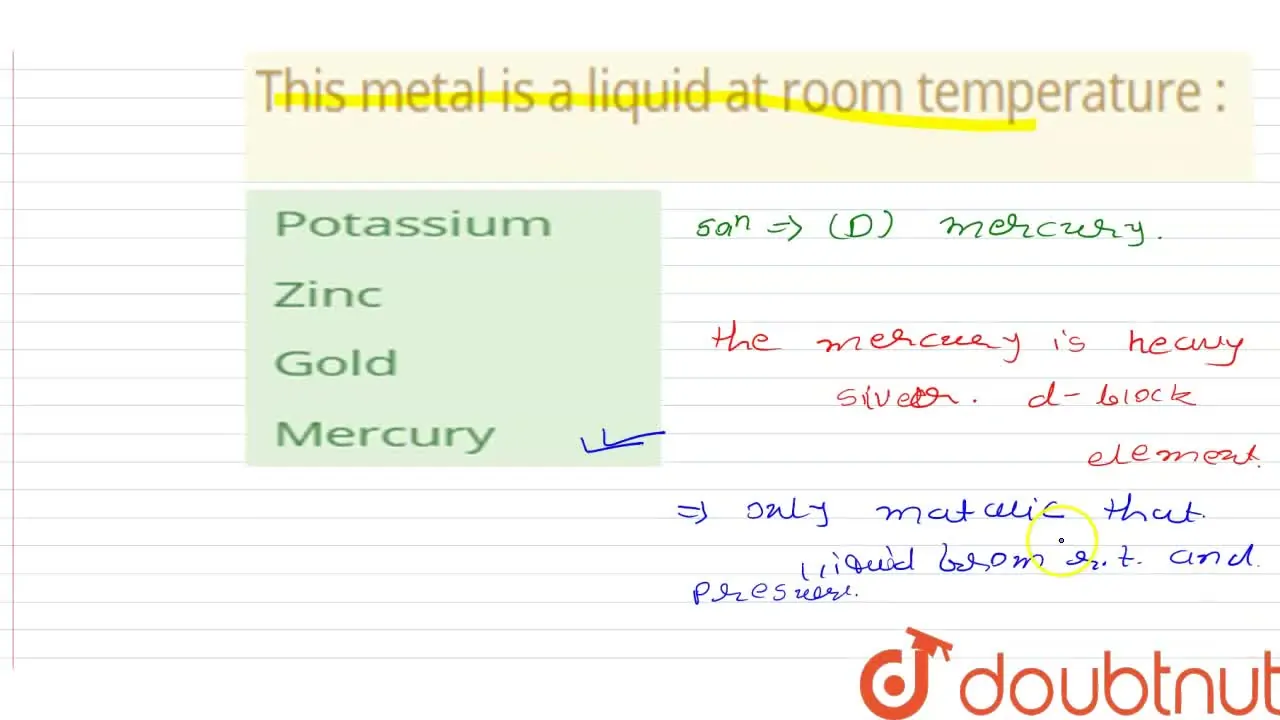 This metal is a liquid at room temperature :
Potassium
Zinc
Gold
Mercury
son => (D) mercury.
the mercury is heavy
silver. d-block
element.
=> only matalic that
liquid r.t. and
pressure.
doubtnut